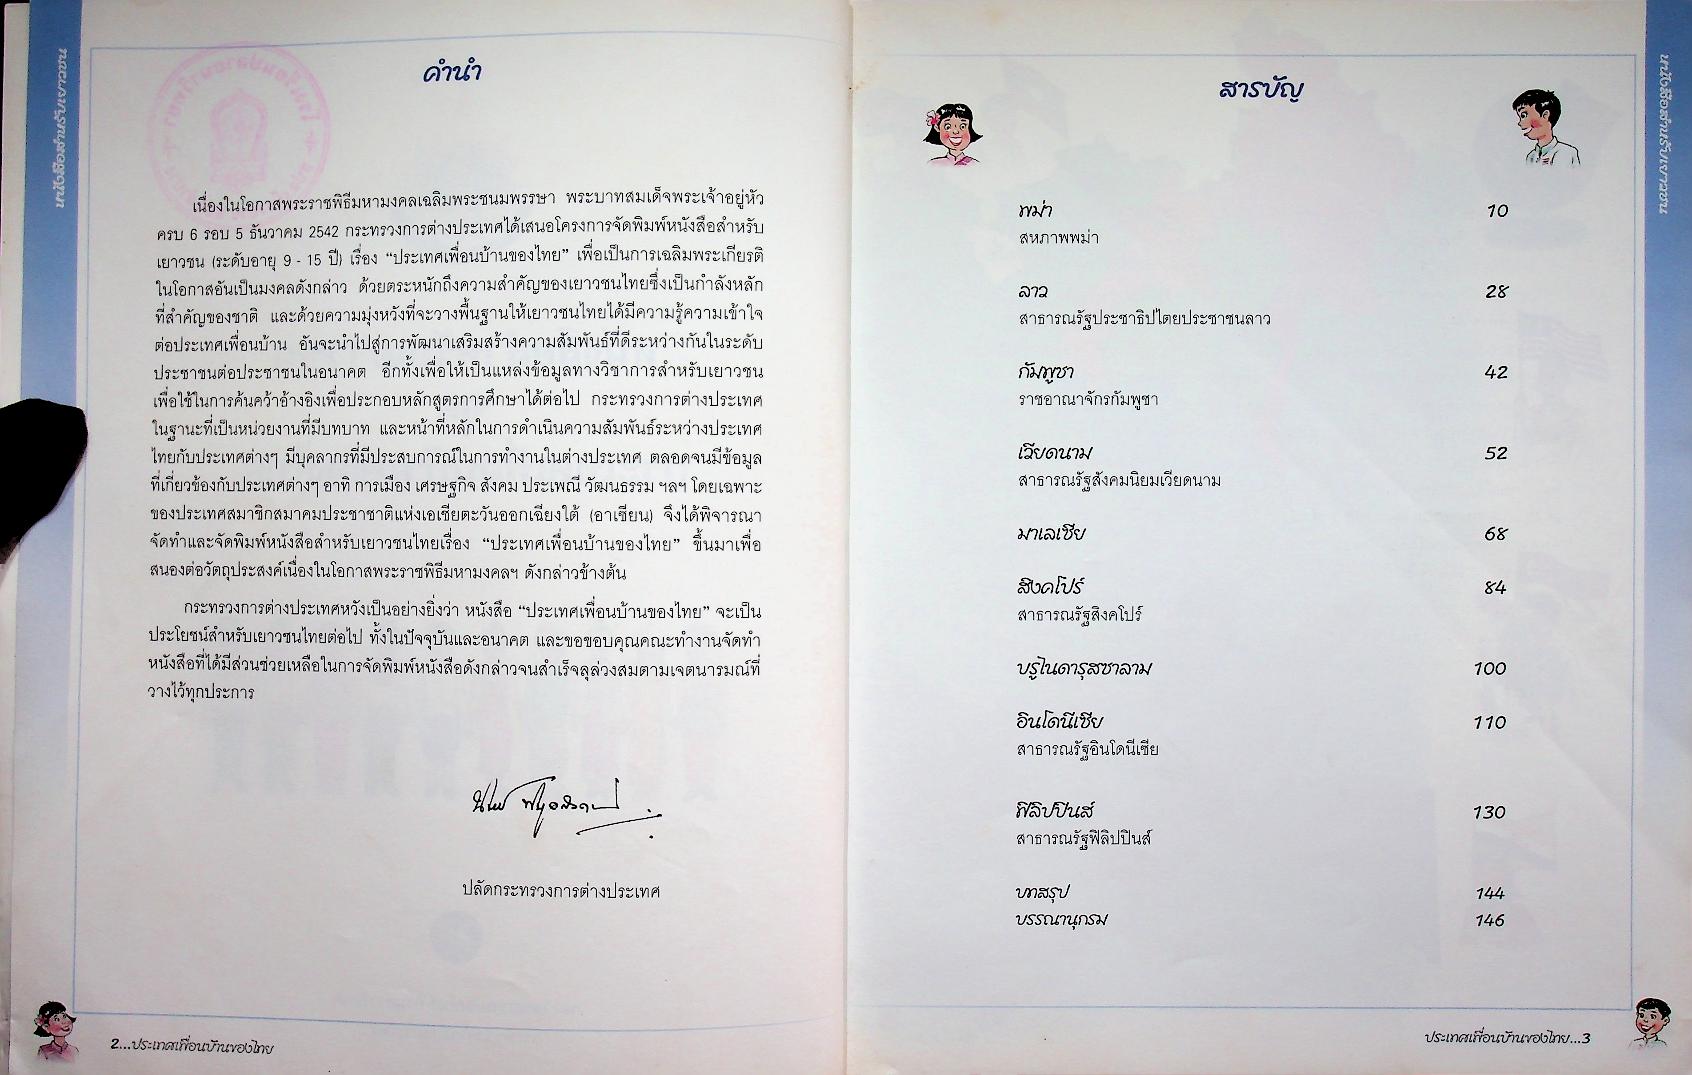 หนังสือสำหรับเยาวชน
คำนำ
เนื่องในโอกาสพระราชพิธีมหามงคลเฉลิมพระชนมพรรษา พระบาทสมเด็จพระเจ้าอยู่หัว
ครบ 6 รอบ 5 ธันวาคม 2542 กระทรวงการต่างประเทศได้เสนอโครงการจัดพิมพ์หนังสือสำหรับ
เยาวชน (ระดับอายุ 9 - 15 ปี) เรื่อง “ประเทศเพื่อนบ้านของไทย” เพื่อเป็นการเฉลิมพระเกียรติ
ในโอกาสอันเป็นมงคลดังกล่าว ด้วยตระหนักถึงความสำคัญของเยาวชนไทยซึ่งเป็นกำลังหลัก
ที่สำคัญของชาติ และด้วยความมุ่งหวังที่จะวางพื้นฐานให้เยาวชนไทยได้มีความรู้ความเข้าใจ
ต่อประเทศเพื่อนบ้าน อันจะนำไปสู่การพัฒนาเสริมสร้างความสัมพันธ์ที่ดีระหว่างกันในระดับ
ประชาชนต่อประชาชนในอนาคต อีกทั้งเพื่อให้เป็นแหล่งข้อมูลทางวิชาการสำหรับเยาวชน
เพื่อใช้ในการค้นคว้าอ้างอิงเพื่อประกอบหลักสูตรการศึกษาได้ต่อไป กระทรวงการต่างประเทศ
ในฐานะที่เป็นหน่วยงานที่มีบทบาท และหน้าที่หลักในการดำเนินความสัมพันธ์ระหว่างประเทศ
ไทยกับประเทศต่างๆ มีบุคลากรที่มีประสบการณ์ในการทำงานในต่างประเทศ ตลอดจนมีข้อมูล
ที่เกี่ยวข้องกับประเทศต่างๆ อาทิ การเมือง เศรษฐกิจ สังคม ประเพณี วัฒนธรรม ฯลฯ โดยเฉพาะ
ของประเทศสมาชิกสมาคมประชาชาติแห่งเอเชียตะวันออกเฉียงใต้ (อาเซียน) จึงได้พิจารณา
จัดทำและจัดพิมพ์หนังสือสำหรับเยาวชนไทยเรื่อง “ประเทศเพื่อนบ้านของไทย” ขึ้นมาเพื่อ
สนองต่อวัตถุประสงค์เนื่องในโอกาสพระราชพิธีมหามงคลฯ ดังกล่าวข้างต้น
กระทรวงการต่างประเทศหวังเป็นอย่างยิ่งว่า หนังสือ “ประเทศเพื่อนบ้านของไทย” จะเป็น
ประโยชน์สำหรับเยาวชนไทยต่อไป ทั้งในปัจจุบันและอนาคต และขอขอบคุณคณะทำงานจัดทำ
หนังสือที่ได้มีส่วนช่วยเหลือในการจัดพิมพ์หนังสือดังกล่าวจนสำเร็จลุล่วงสมตามเจตนารมณ์ที่
วางไว้ทุกประการ
ปลัดกระทรวงการต่างประเทศ
2...ประเทศเพื่อนบ้านของไทย
หนังสือสำหรับเยาวชน
สารบัญ
พม่า 10
สหภาพพม่า
ลาว 28
สาธารณรัฐประชาธิปไตยประชาชนลาว
กัมพูชา 42
ราชอาณาจักรกัมพูชา
เวียดนาม 52
สาธารณรัฐสังคมนิยมเวียดนาม
มาเลเซีย 68
สิงคโปร์ 84
สาธารณรัฐสิงคโปร์
บรูไนดารุสซาลาม 100
อินโดนีเซีย 110
สาธารณรัฐอินโดนีเซีย
ฟิลิปปินส์ 130
สาธารณรัฐฟิลิปปินส์
บทสรุป 144
บรรณานุกรม 146
ประเทศเพื่อนบ้านของไทย...3